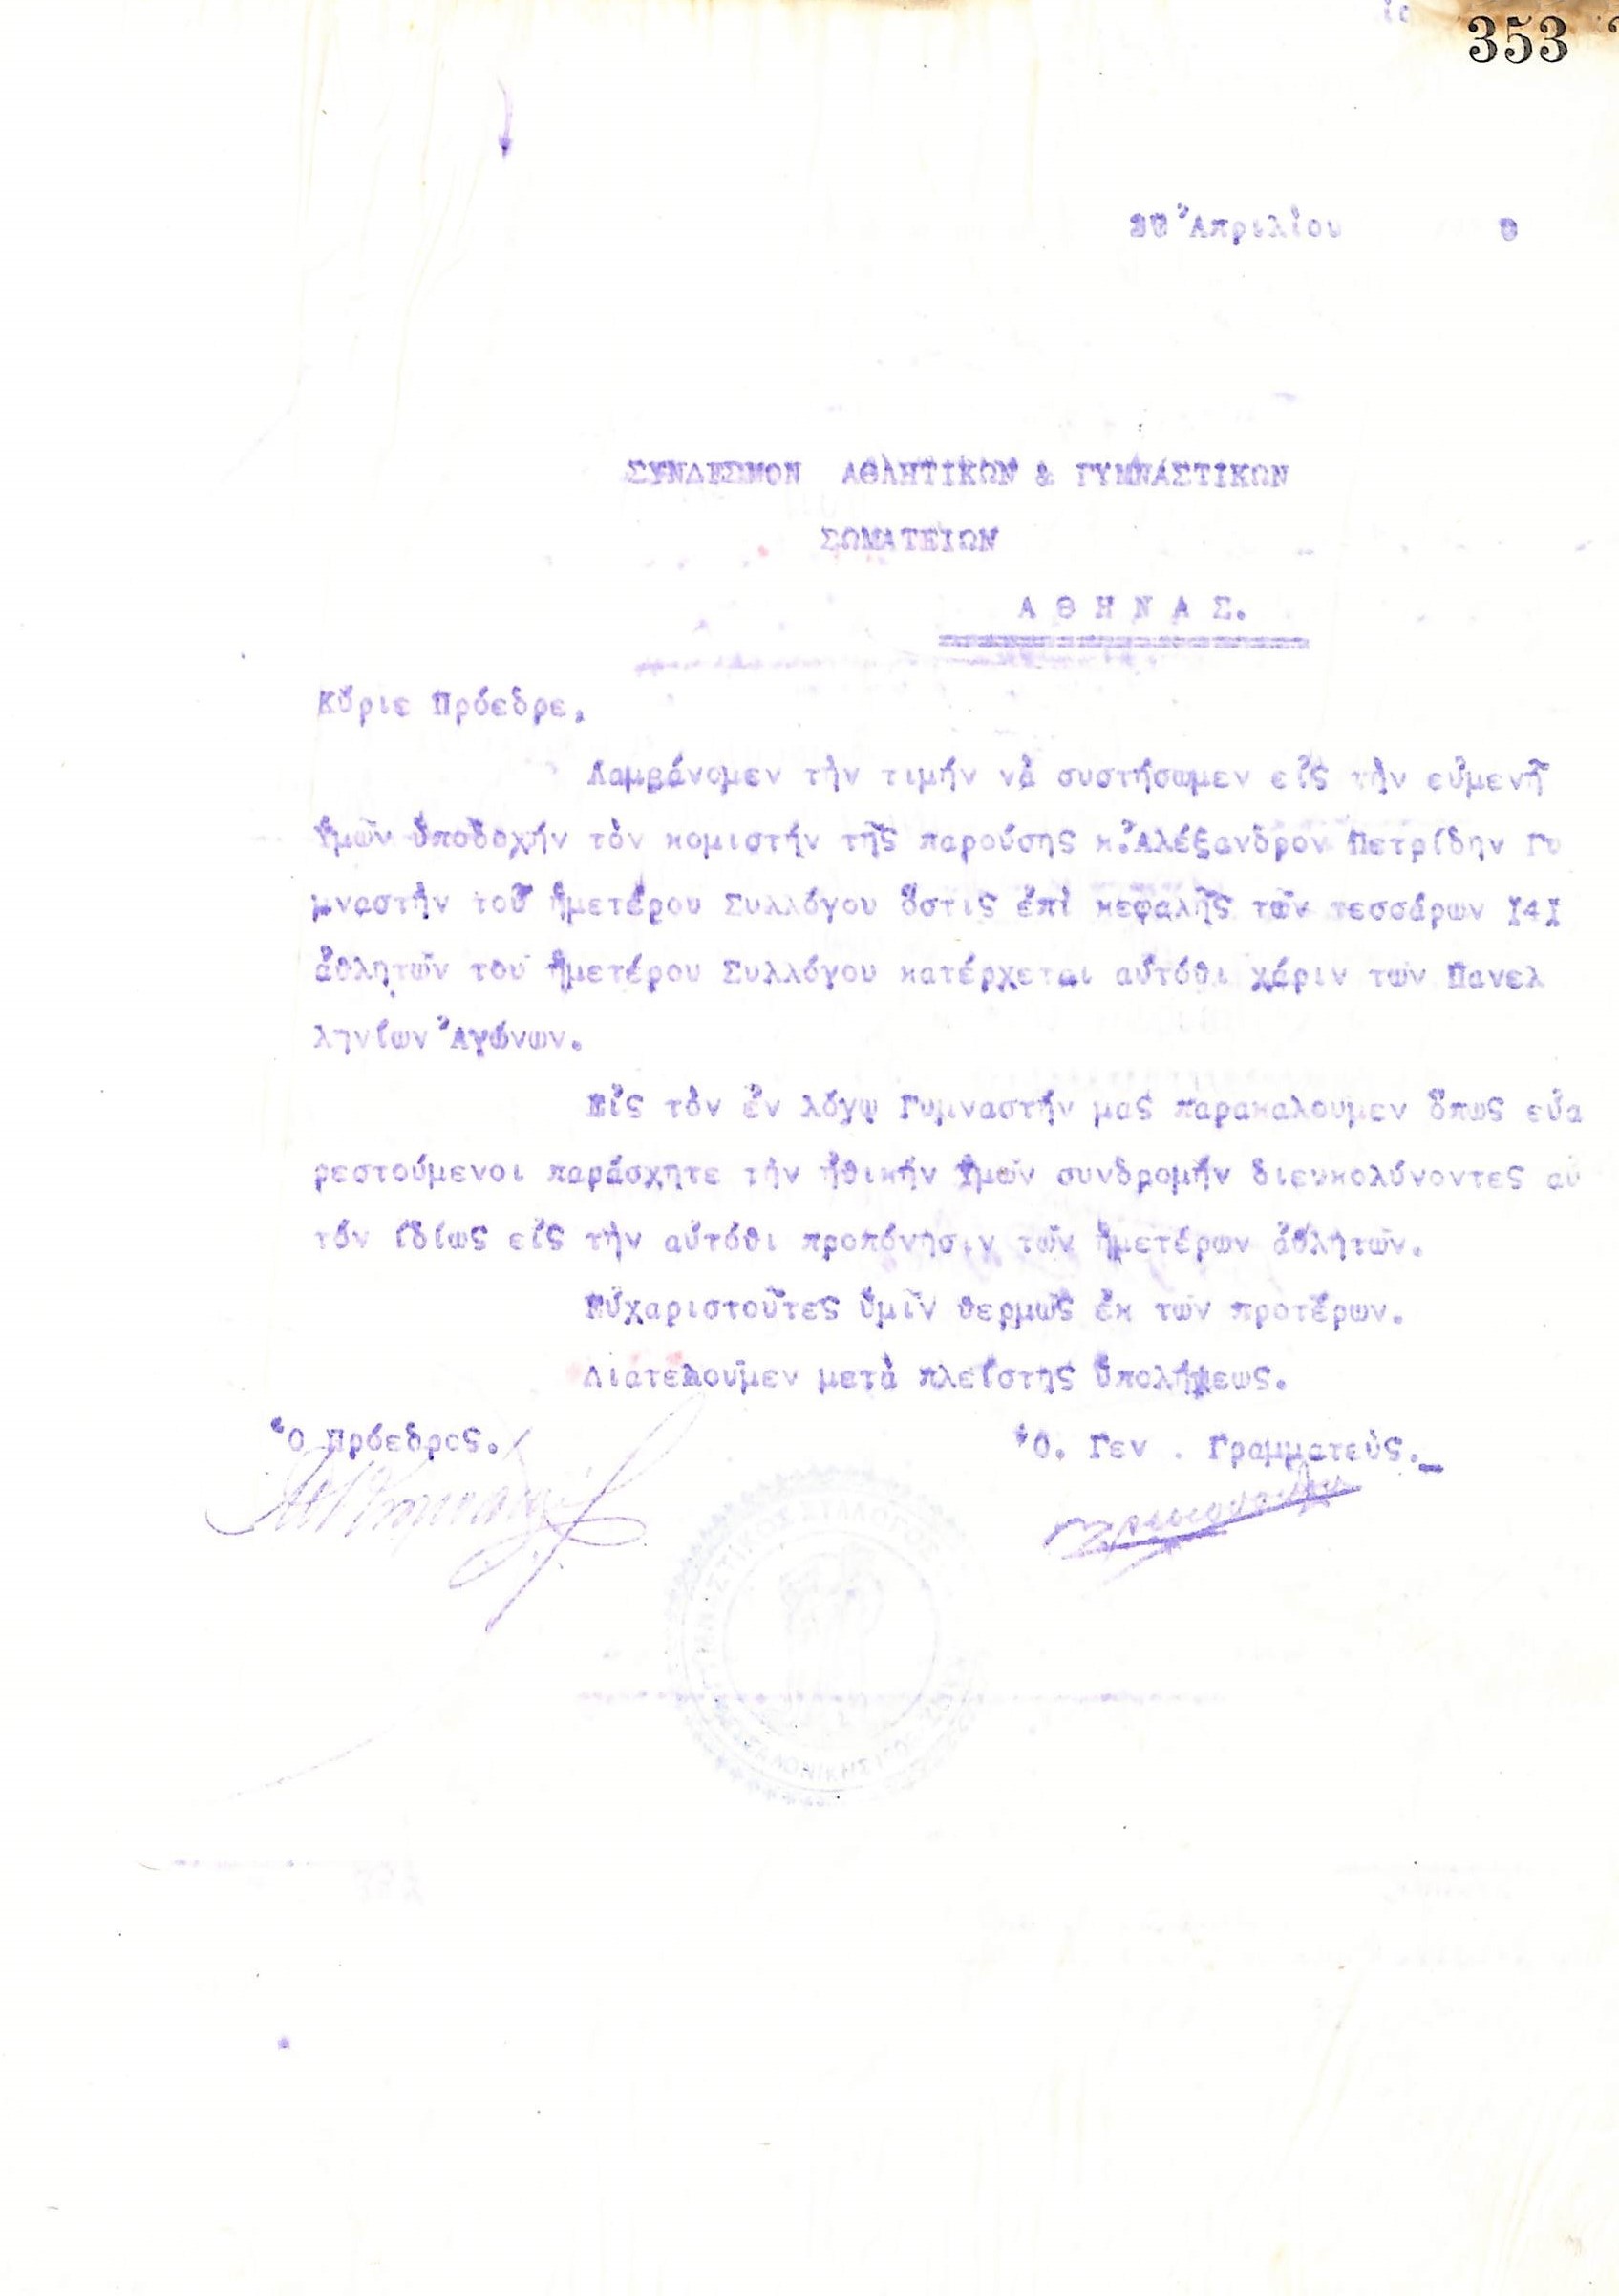 353
Ἀπριλίου
ΣΥΝΔΕΣΜΟΝ ΑΘΛΗΤΙΚΩΝ & ΓΥΜΝΑΣΤΙΚΩΝ
ΣΩΜΑΤΕΙΩΝ
Α Θ Η Ν Α Σ.
Κύριε Πρόεδρε.
Λαμβάνομεν τὴν τιμήν νὰ συστήσωμεν εἰς τὴν εὐμενῆ
ὑμῶν ὑποδοχήν τὸν κομιστήν τῆς παρούσης κ.Ἀλέξανδρον Πετρίδην Γυ
μναστὴν τοῦ ἡμετέρου Συλλόγου ὅστις ἐπὶ κεφαλῆς τῶν τεσσάρων Ι4Ι
ἀθλητῶν τοῦ ἡμετέρου Συλλόγου κατέρχεται αὐτόθι χάριν τῶν Πανελ
ληνίων Ἀγώνων.
Εἰς τὸν ἐν λόγῳ Γυμναστήν μας παρακαλοῦμεν ὅπως εὐα
ρεστούμενοι παράσχητε τὴν ἠθικήν ὑμῶν συνδρομήν διευκολύνοντες αὐ
τόν ἰδίως εἰς τὴν αὐτόθι προπόνησιν τῶν ἡμετέρων ἀθλητῶν.
Εὐχαριστοῦτες ὑμῖν θερμῶς ἐκ τῶν προτέρων.
Διατελοῦμεν μετὰ πλείστης ὑπολήψεως.
Ὁ Πρόεδρος. Ὁ. Γεν . Γραμματεύς.
ΓΥΜΝΑΣΤΙΚΟΣ ΣΥΛΛΟΓΟΣ